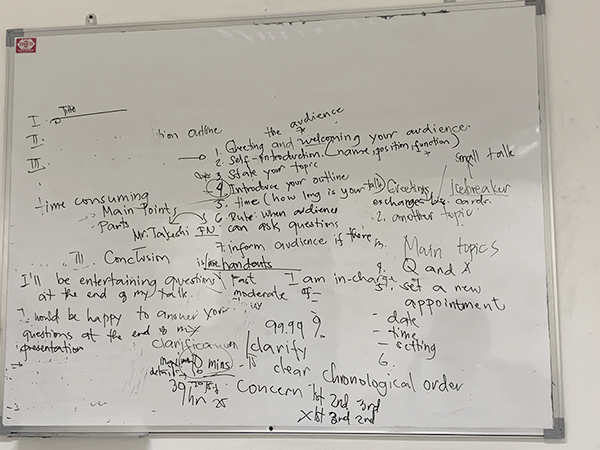 Title
I.
II.
III.
tion outline
the audience
1. Greeting and welcoming your audience.
2. Self-introduction. (name, position, function)
3. State your topic
4. Introduce your outline
5. time (how long is your talk)
6. Rule: when audience
can ask questions
7. inform audience if there is
is/are handouts
time consuming
Main Points
Parts
Mr. Takeshi IN
III. Conclusion
small talk
Greetings
Icebreaker
exchange cards.
2. another topic.
Main topics
4. Q and A
5. set a new
appointment
- date
- time
- setting
6.
I'll be entertaining questions
at the end of my talk.
I would be happy to answer your
questions at the end of my
presentation
Fast
moderate
I am in-charge
of
99.99 %
clarification
clarify
10 mins
details
clear
chronological order
39
hn
25
Concern
1st 2nd 3rd
X 1st 3rd 2nd